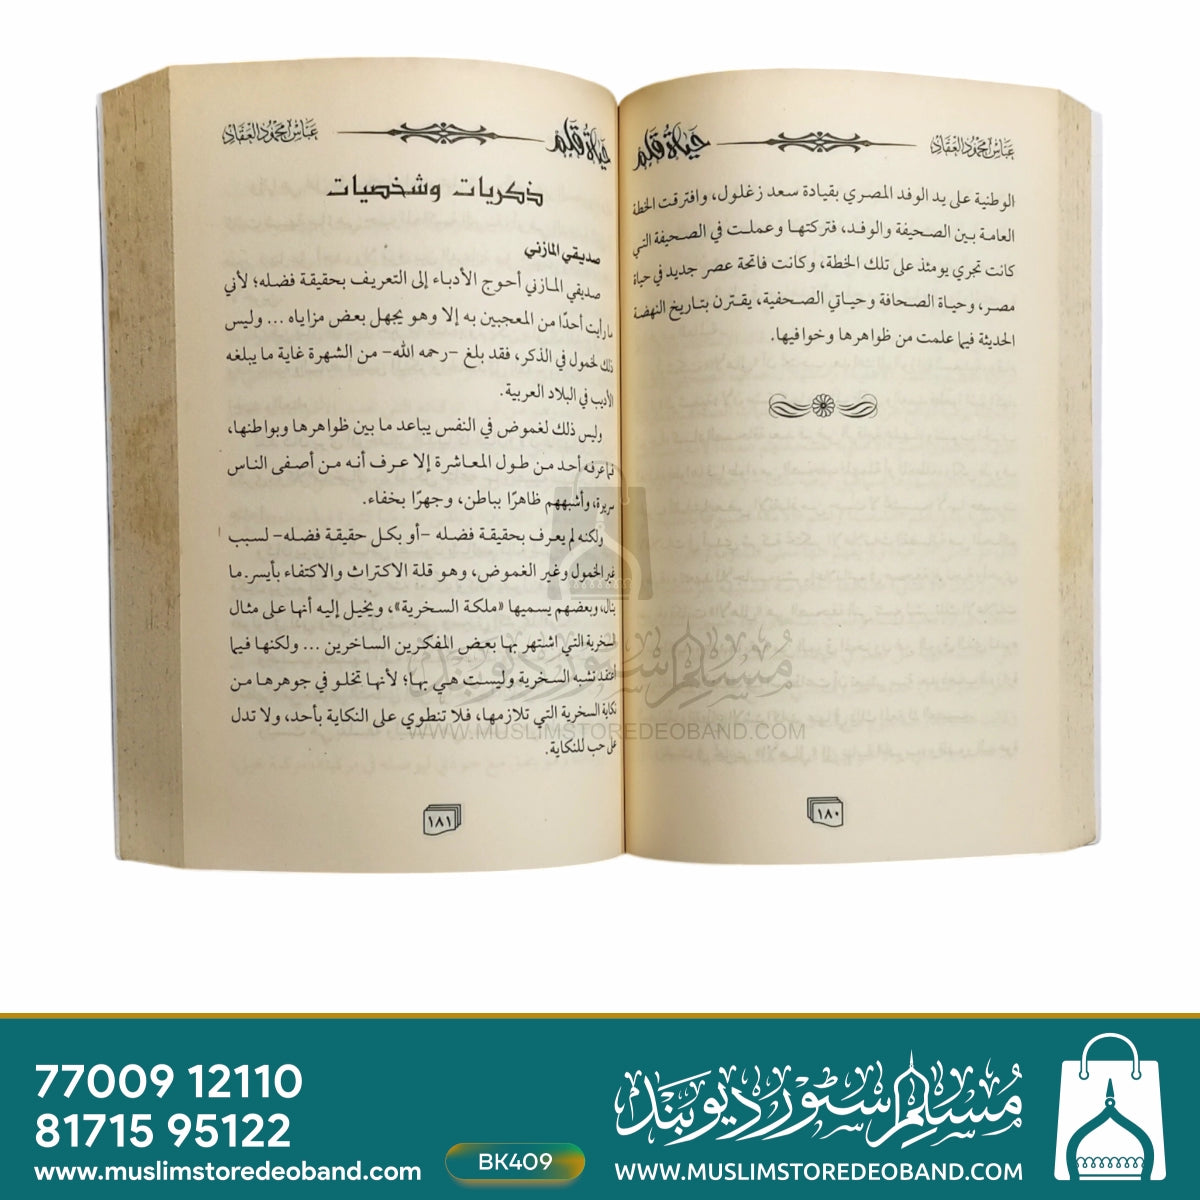 حياة قلم
عباس محمود العقاد
الوطنية على يد الوفد المصري بقيادة سعد زغلول، وافترقت الخطة
العامة بين الصحيفة والوفد، فتركتها وعملت في الصحيفة التي
كانت تجري يومئذ على تلك الخطة، وكانت فاتحة عصر جديد في حياة
مصر، وحياة الصحافة وحياتي الصحفية، يقترن بتاريخ النهضة
الحديثة فيما علمت من ظواهرها وخوافيها.
١٨٠
حياة قلم
عباس محمود العقاد
ذكريات وشخصيات
صديقي المازني
صديقي المازني أحوج الأدباء إلى التعريف بحقيقة فضله؛ لأني
ما رأيت أحدًا من المعجبين به إلا وهو يجهل بعض مزاياه ... وليس
ذلك لخمول في الذكر، فقد بلغ –رحمه الله– من الشهرة غاية ما يبلغه
الأديب في البلاد العربية.
وليس ذلك لغموض في النفس يباعد ما بين ظواهرها وبواطنها،
فما عرفه أحد من طول المعاشرة إلا عرف أنه من أصفى الناس
سريرة، وأشبههم ظاهرًا بباطن، وجهرًا بخفاء.
ولكنه لم يعرف بحقيقة فضله –أو بكل حقيقة فضله– لسبب
غير الخمول وغير الغموض، وهو قلة الاكتراث والاكتفاء بأيسر ما
ينال، وبعضهم يسميها «ملكة السخرية»، ويخيل إليه أنها على مثال
السخرية التي اشتهر بها بعض المفكرين الساخرين ... ولكنها فيما
أعتقد تشبه السخرية وليست هي بها؛ لأنها تخلو في جوهرها من
نكاية السخرية التي تلازمها، فلا تنطوي على النكاية بأحد، ولا تدل
على حب للنكاية.
١٨١
مسلم سٹور دیوبند
WWW.MUSLIMSTOREDEOBAND.COM
77009 12110
81715 95122
www.muslimstoredeoband.com
BK409
مسلم سٹور دیوبند
WWW.MUSLIMSTOREDEOBAND.COM